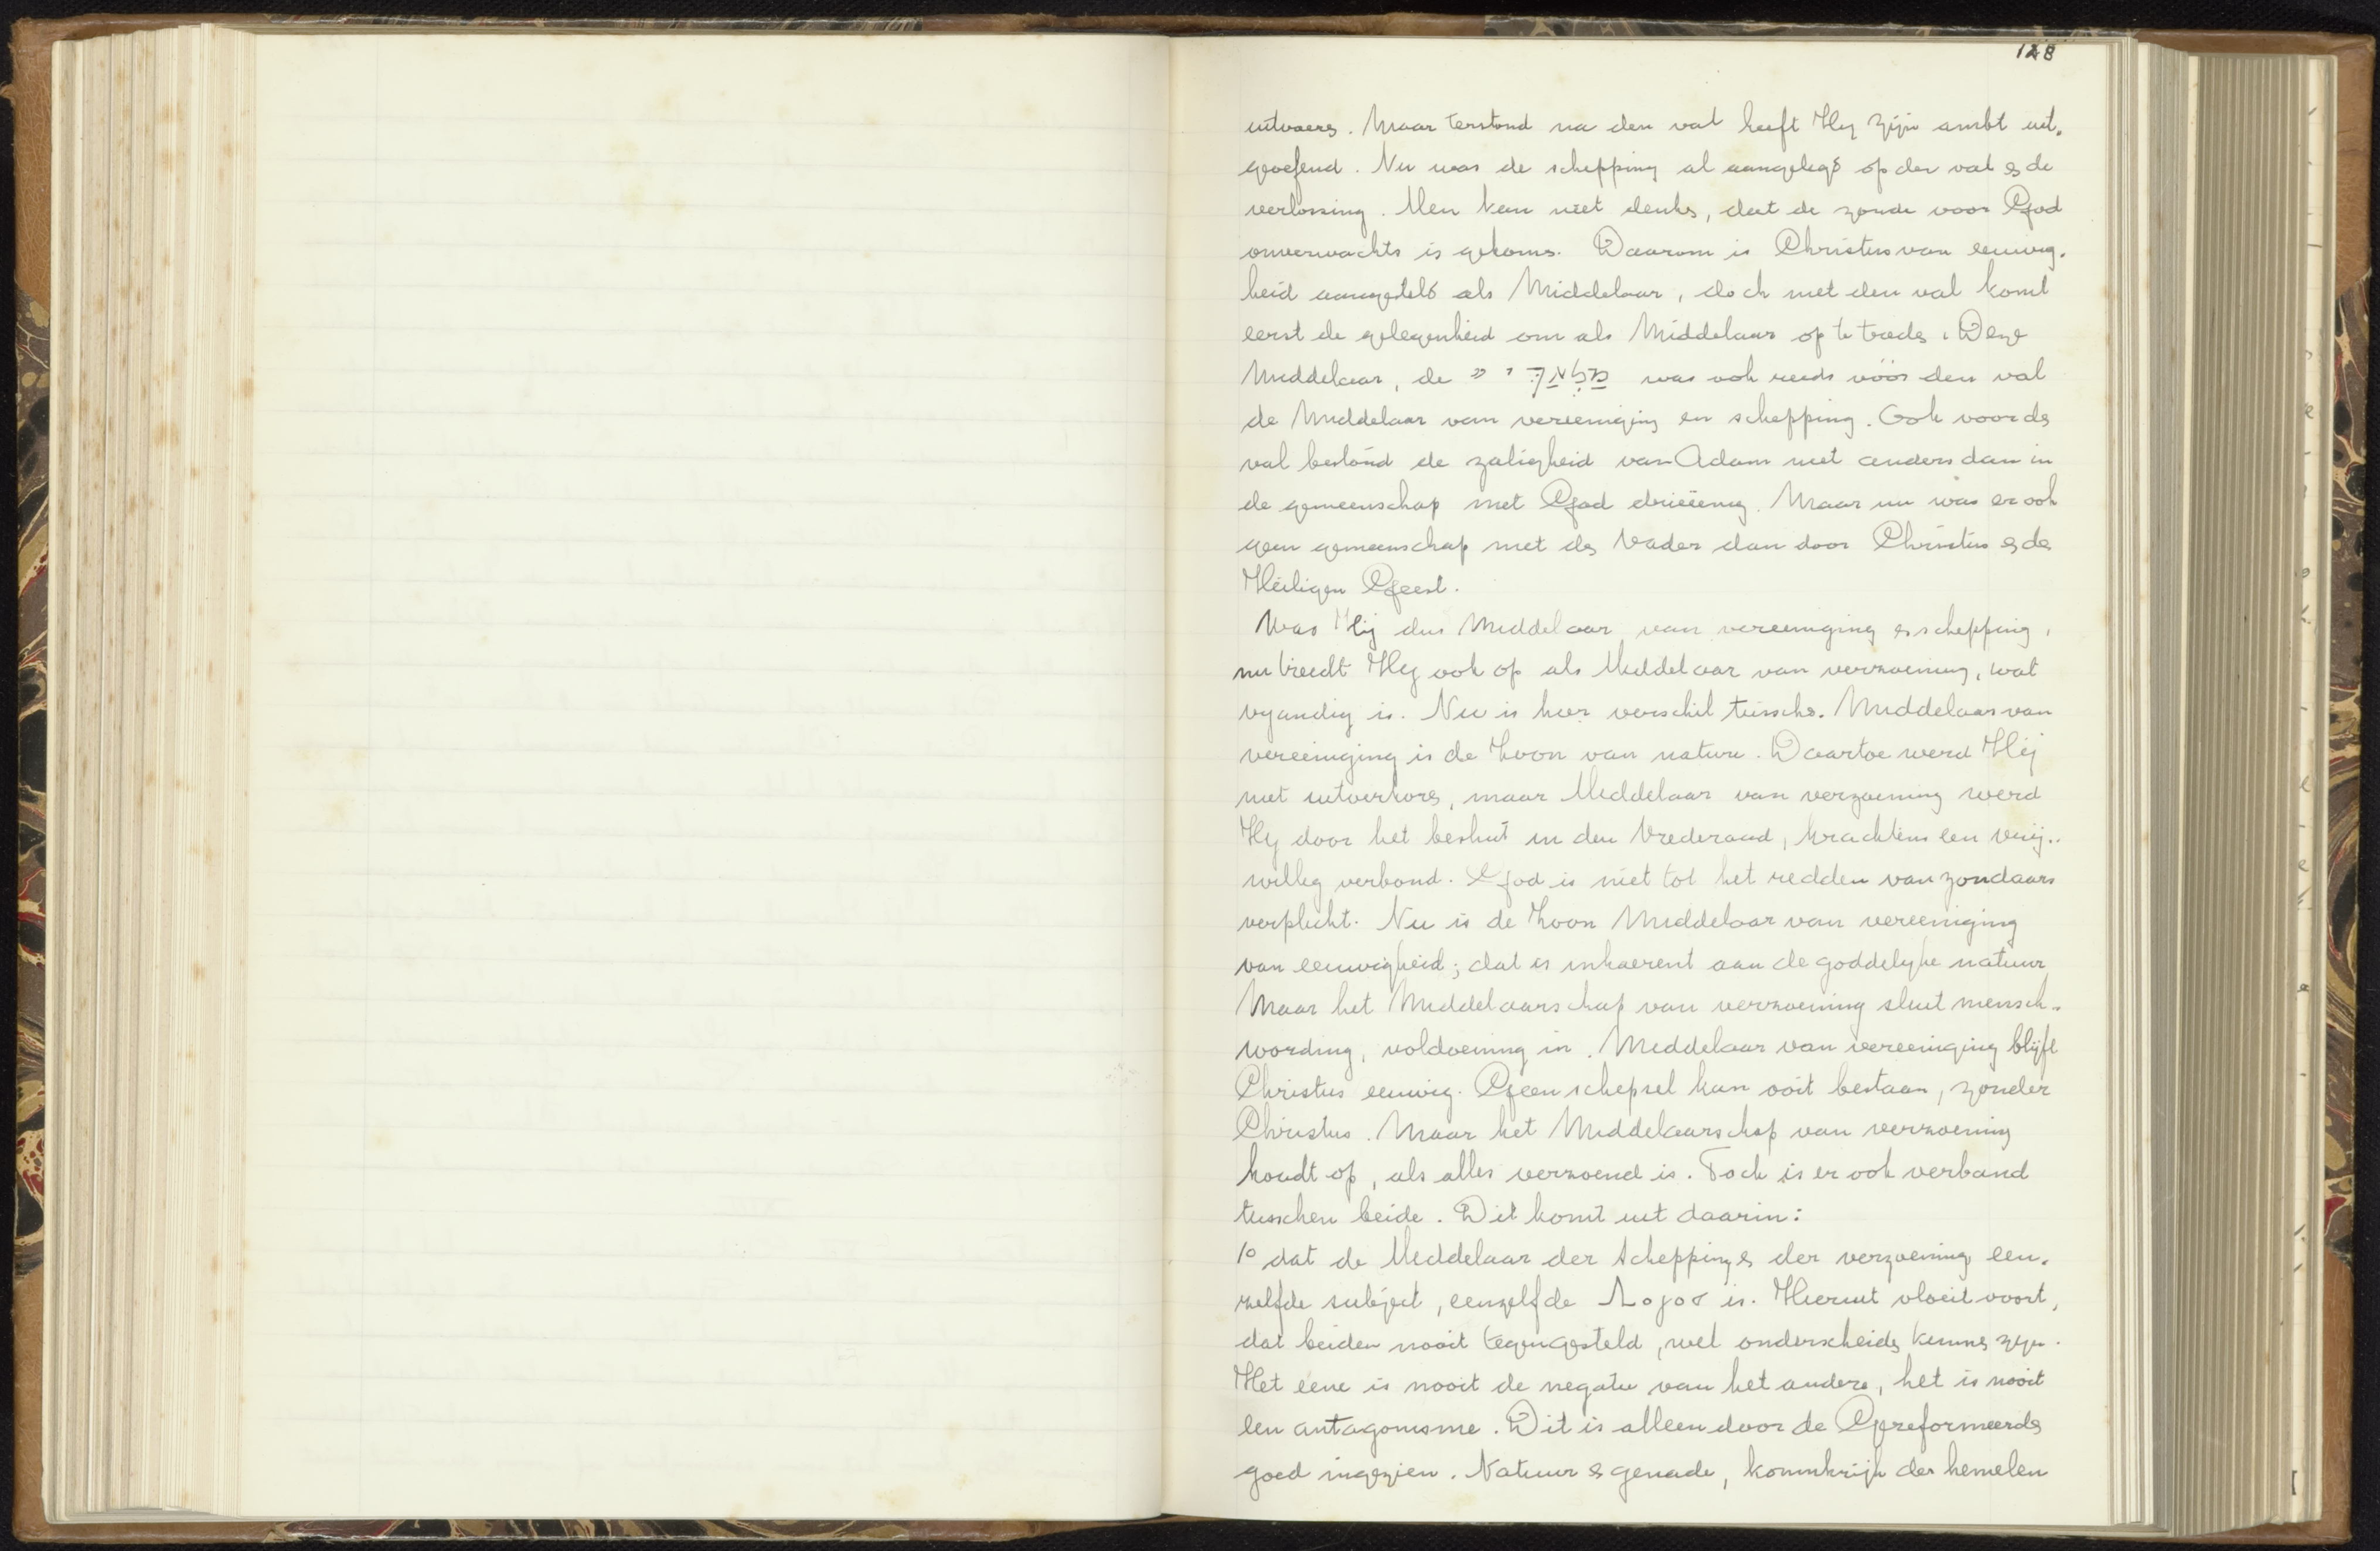 128
uitvoere. Maar terstond na den val heeft Hij zijn ambt uit-
geoefend. Nu was de schepping al aangelegd op den val en de
verlossing. Men kan niet denken, dat de zonde voor God
onverwachts is gekomen. Daarom is Christus van eeuwig-
heid aangesteld als Middelaar, doch met den val komt
eerst de gelegenheid om als Middelaar op te treden. Deze
Middelaar, de מַלְאַךְ י״ was ook reeds vóór den val
de Middelaar van vereeniging en schepping. Ook voor den
val bestond de zaligheid van Adam niet anders dan in
de gemeenschap met God drieëenig. Maar nu was er ook
geen gemeenschap met den Vader dan door Christus en den
Heiligen Geest.
Was Hij dus Middelaar van vereeniging en schepping,
nu treedt Hij ook op als Middelaar van verzoening, wat
vyandig is. Nu is hier verschil tusschen. Middelaar van
vereeniging is de Zoon van nature. Daartoe werd Hij
niet uitverkoren, maar Middelaar van verzoening werd
Hij door het besluit in den Vrederaad, krachtens een vrij-
willig verbond. God is niet tot het redden van zondaars
verplicht. Nu is de Zoon Middelaar van vereeniging
van eeuwigheid; dat is inhaerent aan de goddelyke natuur
Maar het Middelaarschap van verzoening sluit mensch-
wording, voldoening in. Middelaar van vereeniging blijft
Christus eeuwig. Geen schepsel kan ooit bestaan, zonder
Christus. Maar het Middelaarschap van verzoening
houdt op, als alles verzoend is. Toch is er ook verband
tusschen beide. Dit komt uit daarin:
1º dat de Middelaar der schepping en der verzoening een-
zelfde subject, eenzelfde Λογοσ is. Hieruit vloeit voort,
dat beiden nooit tegengesteld, wel onderscheiden kunnen zijn.
Het eene is nooit de negatie van het andere, het is nooit
een antagonisme. Dit is alleen door de Gereformeerden
goed ingezien. Natuur en genade, koninkrijk der hemelen